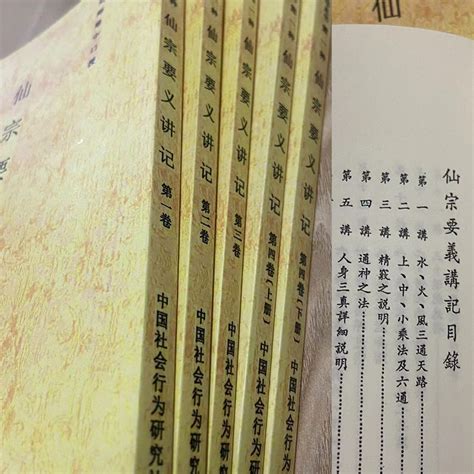 仙宗要
仙宗要义讲记 第一卷 中国社会行为研究
仙宗要义讲记 第二卷 中国社会行为研究
仙宗要义讲记 第三卷 中国社会行为研究
仙宗要义讲记 第四卷（上册） 中国社会行为研
仙宗要义讲记 第四卷（下册） 中国社会行为研
仙
仙宗要義講記目錄
第一講 水、火、風三通天路………
第二講 上、中、小乘法及六通………
第三講 精竅之説明………
第四講 通神之法………
第五講 人身三真詳細説明………